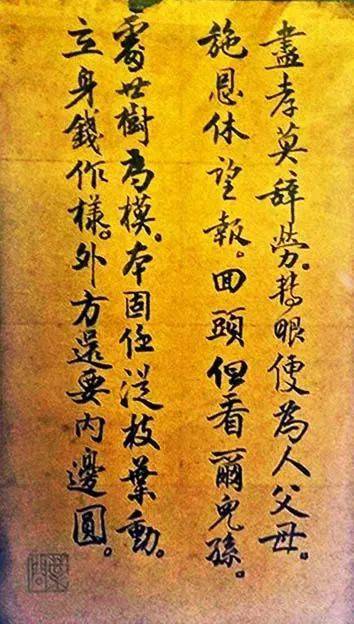 盡孝莫辭勞。轉眼便為人父母。
施恩休望報。回頭但看爾兒孫。
處世樹為模。本固任從枝葉動。
立身錢作樣。外方還要內邊圓。